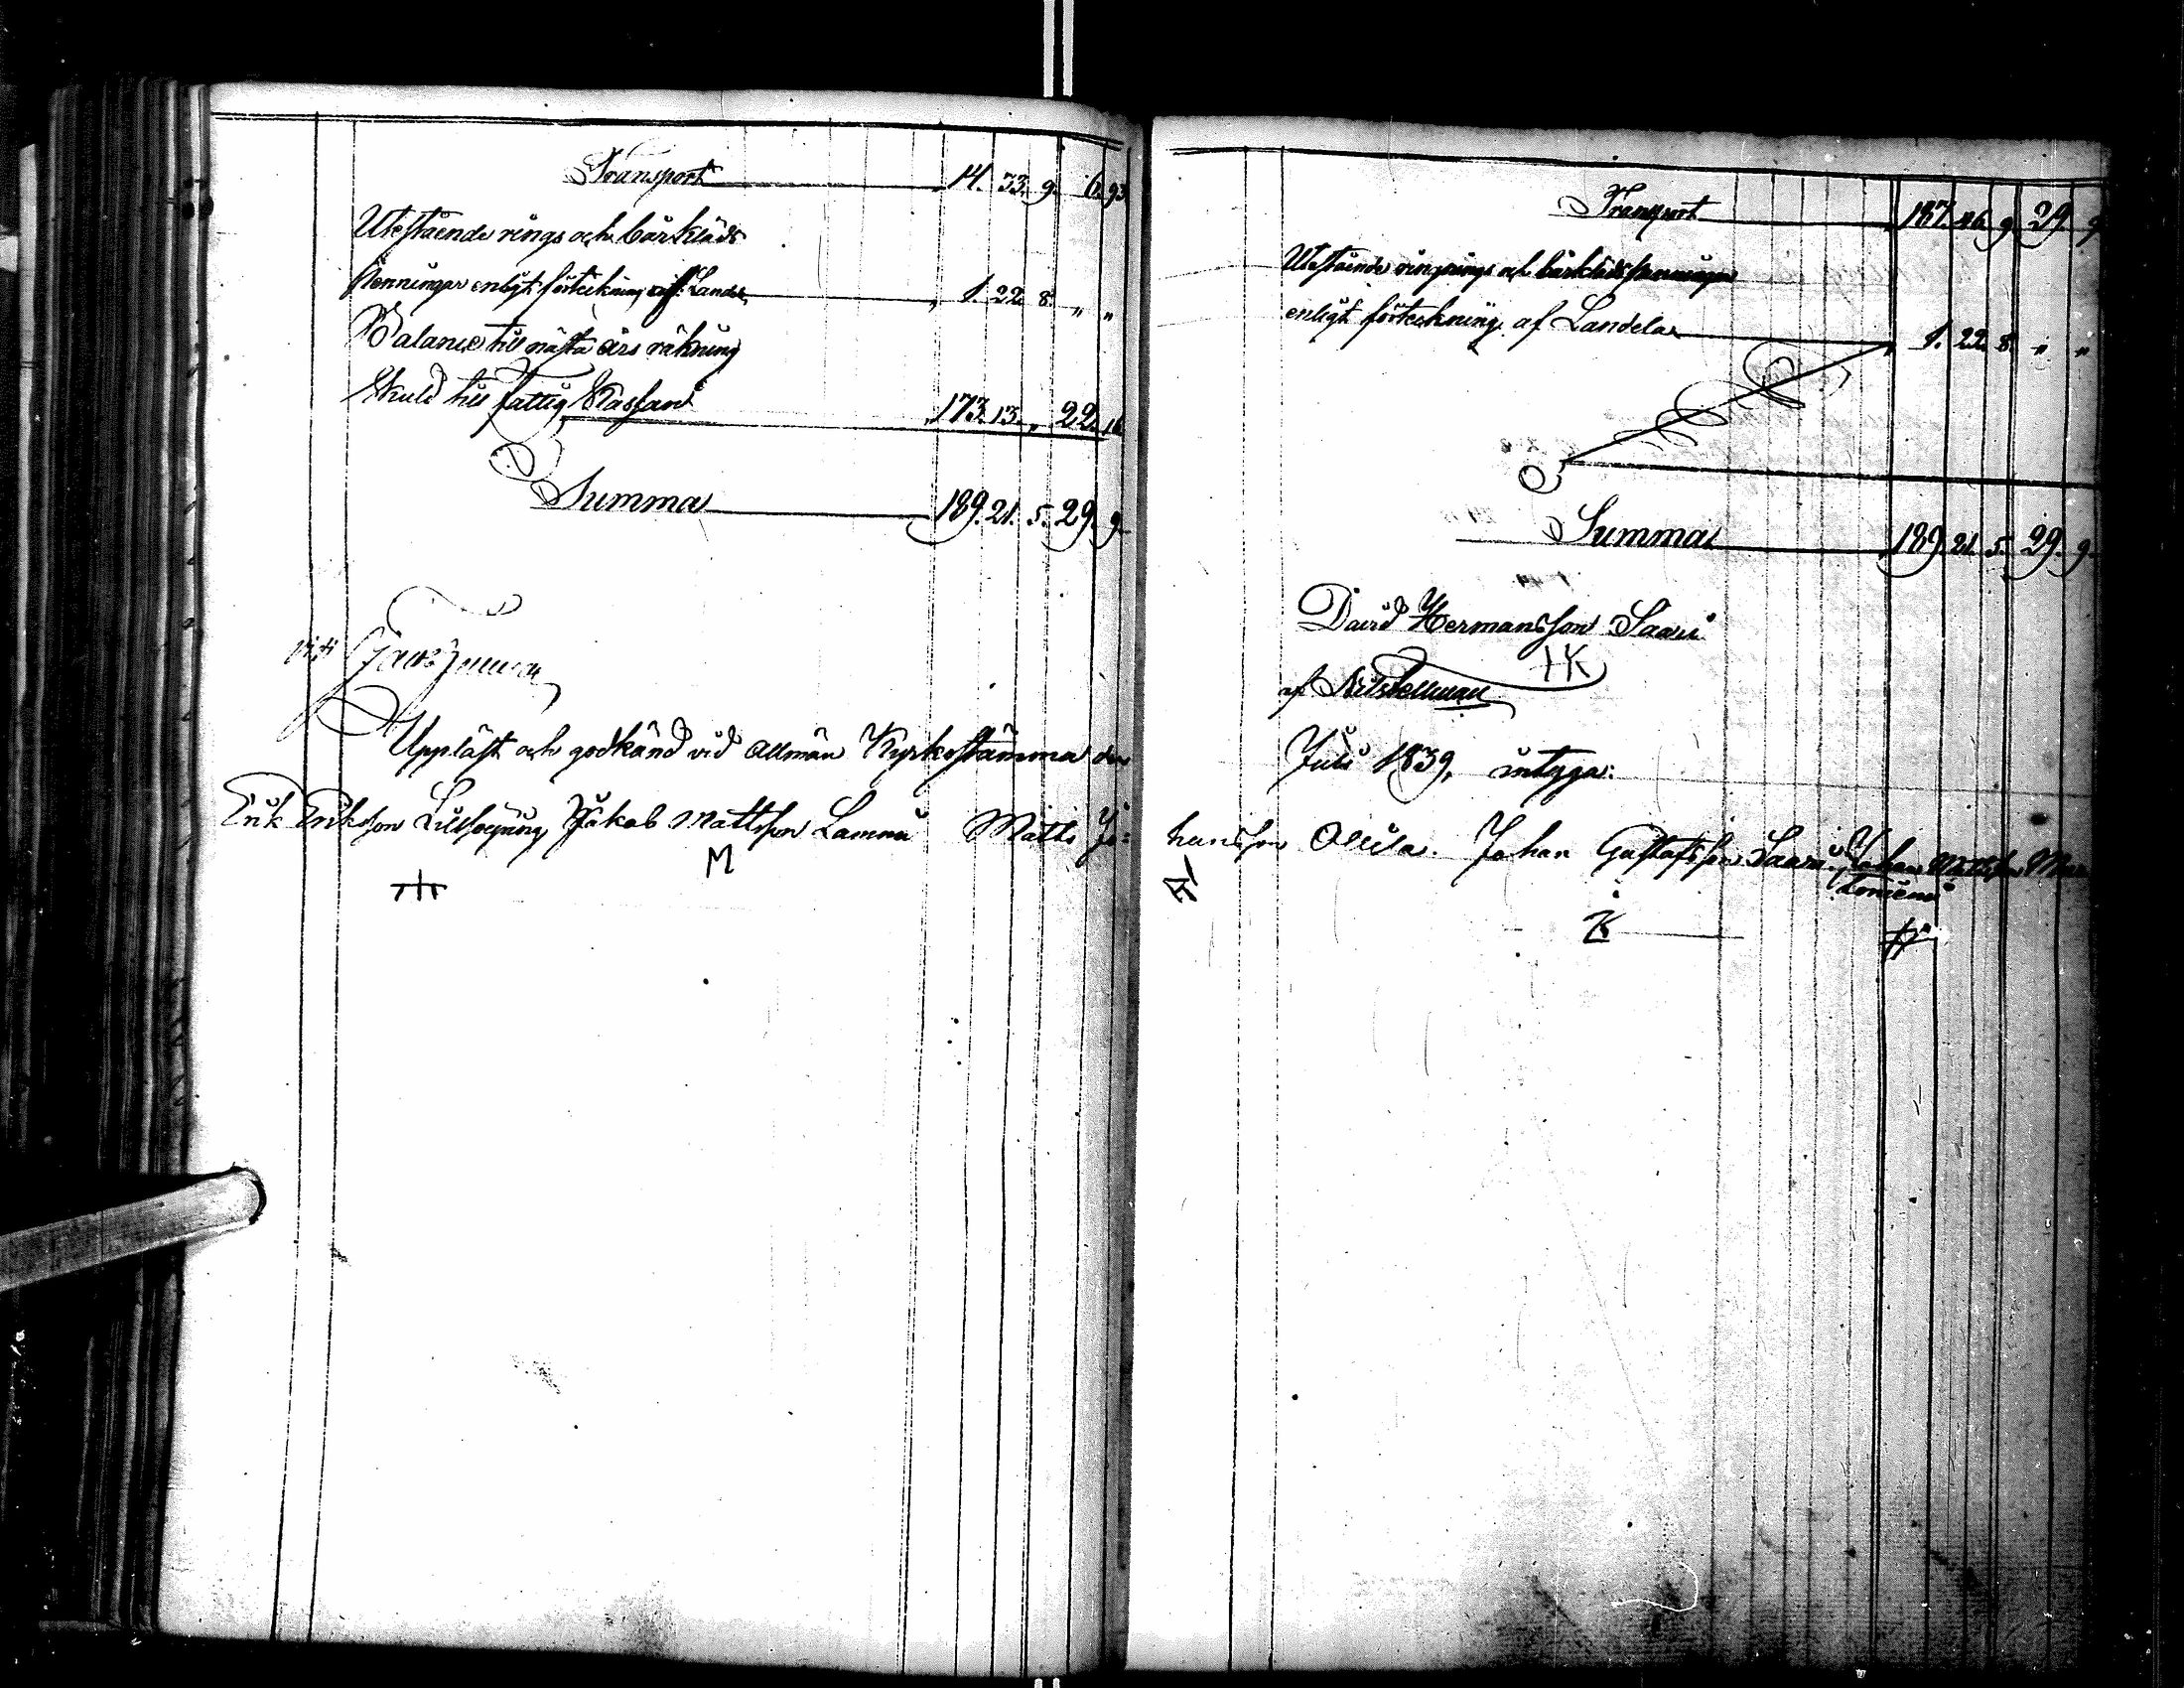 Transport 14. 33. 9. 6. 93
Utestående rings och bårkläds
penningar enligt förteckning af Landel. " 1. 22. 8. " "
Balance till nästa års räkning
Skuld till fattig Kassan 173. 13. " 22. 16
Summa 189. 21. 5. 29. 9
Uppläst och godkänd vid allmän Kyrkostämma den
Erik Eriksson Jakob Mattsson Lammi Matts Jo:
M
Transport 187. 46. 9. 29. 9
Utestående ringnings och bårklädspenningar
enligt förteckning af Landelar " 1. 22. 8. " "
Summa 189. 21. 5. 29. 9
David Hermansson Saari
af
Juli 1839, intyga:
hansson Ollila. Johan Gustafsson Saari Johan Mattsson